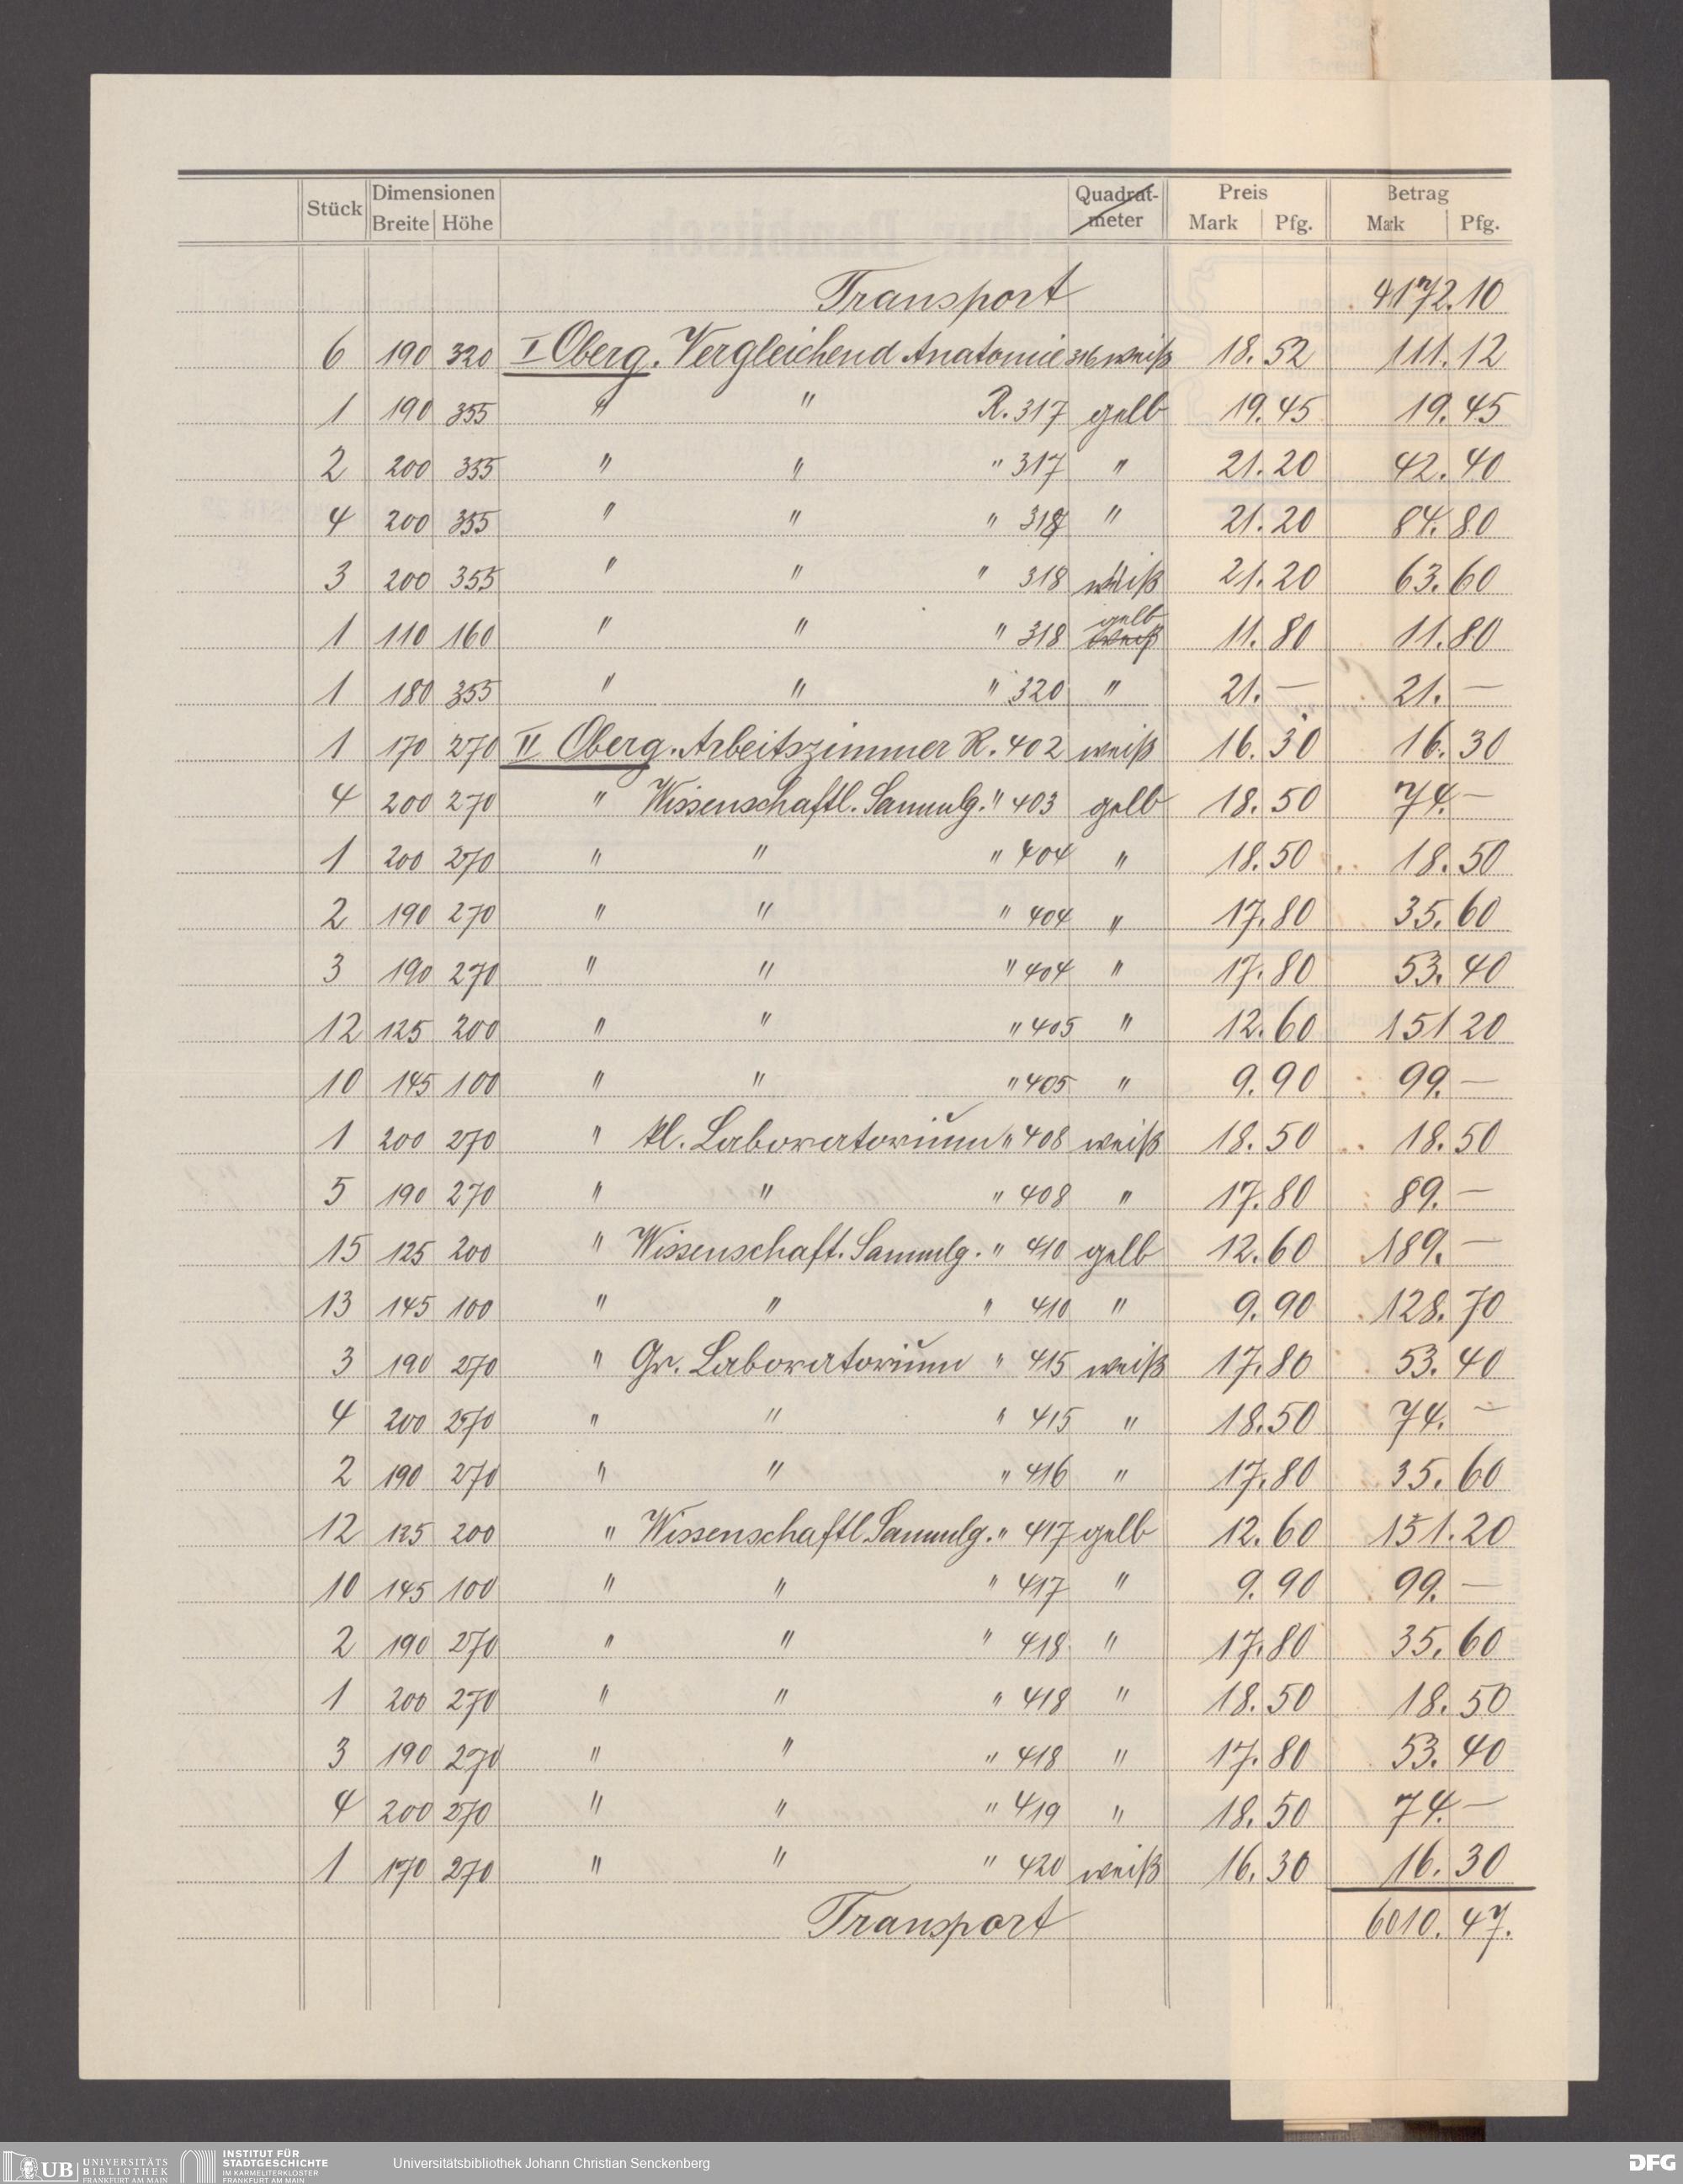 Stück Dimensionen Breite Höhe Quadrat-meter Preis Mark Pfg. Betrag Mark Pfg.
Transport 4172.10
6 190 320 I Oberg. Vergleichend Anatomie 316 weiß 18.52 111.12
1 190 355 " " R. 317 gelb 19.45 19.45
2 200 355 " " " 317 " 21.20 42.40
4 200 355 " " " 318 " 21.20 84.80
3 200 355 " " " 318 weiß 21.20 63.60
1 110 160 " " " 318 gelb 11.80 11.80
1 180 355 " " " 320 " 21.— 21.—
1 170 270 II Oberg. Arbeitszimmer R. 402 weiß 16.30 16.30
4 200 270 " Wissenschaftl. Sammlg. " 403 gelb 18.50 74.—
1 200 270 " " " 404 " 18.50 18.50
2 190 270 " " " 404 " 17.80 35.60
3 190 270 " " " 404 " 17.80 53.40
12 125 200 " " " 405 " 12.60 151 20
10 145 100 " " " 405 " 9.90 99.—
1 200 270 " kl. Laboratorium " 408 weiß 18.50 18.50
5 190 270 " " " 408 " 17.80 89.—
15 125 200 " Wissenschaft. Sammlg. " 410 gelb 12.60 189.—
13 145 100 " " " 410 " 9.90 128.70
3 190 270 " Gr. Laboratorium " 415 weiß 17.80 53.40
4 200 270 " " " 415 " 18.50 74.—
2 190 270 " " " 416 " 17.80 35.60
12 125 200 " Wissenschaftl. Sammlg. " 417 gelb 12.60 151.20
10 145 100 " " " 417 " 9.90 99.—
2 190 270 " " " 418 " 17.80 35.60
1 200 270 " " " 418 " 18.50 18.50
3 190 270 " " " 418 " 17.80 53.40
4 200 270 " " " 419 " 18.50 74.—
1 170 270 " " " 420 weiß 16.30 16.30
Transport 6010.47.
UB UNIVERSITÄTS BIBLIOTHEK FRANKFURT AM MAIN
INSTITUT FÜR STADTGESCHICHTE IM KARMELITERKLOSTER FRANKFURT AM MAIN
Universitätsbibliothek Johann Christian Senckenberg
DFG